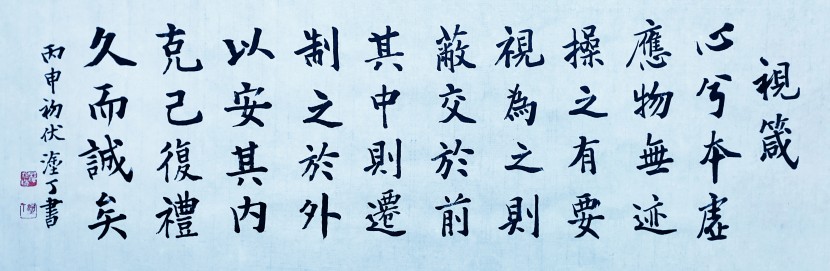 視箴
心兮本虛
應物無迹
操之有要
視為之則
蔽交於前
其中則遷
制之於外
以安其内
克己復禮
久而誠矣
丙申初伏濹丁書